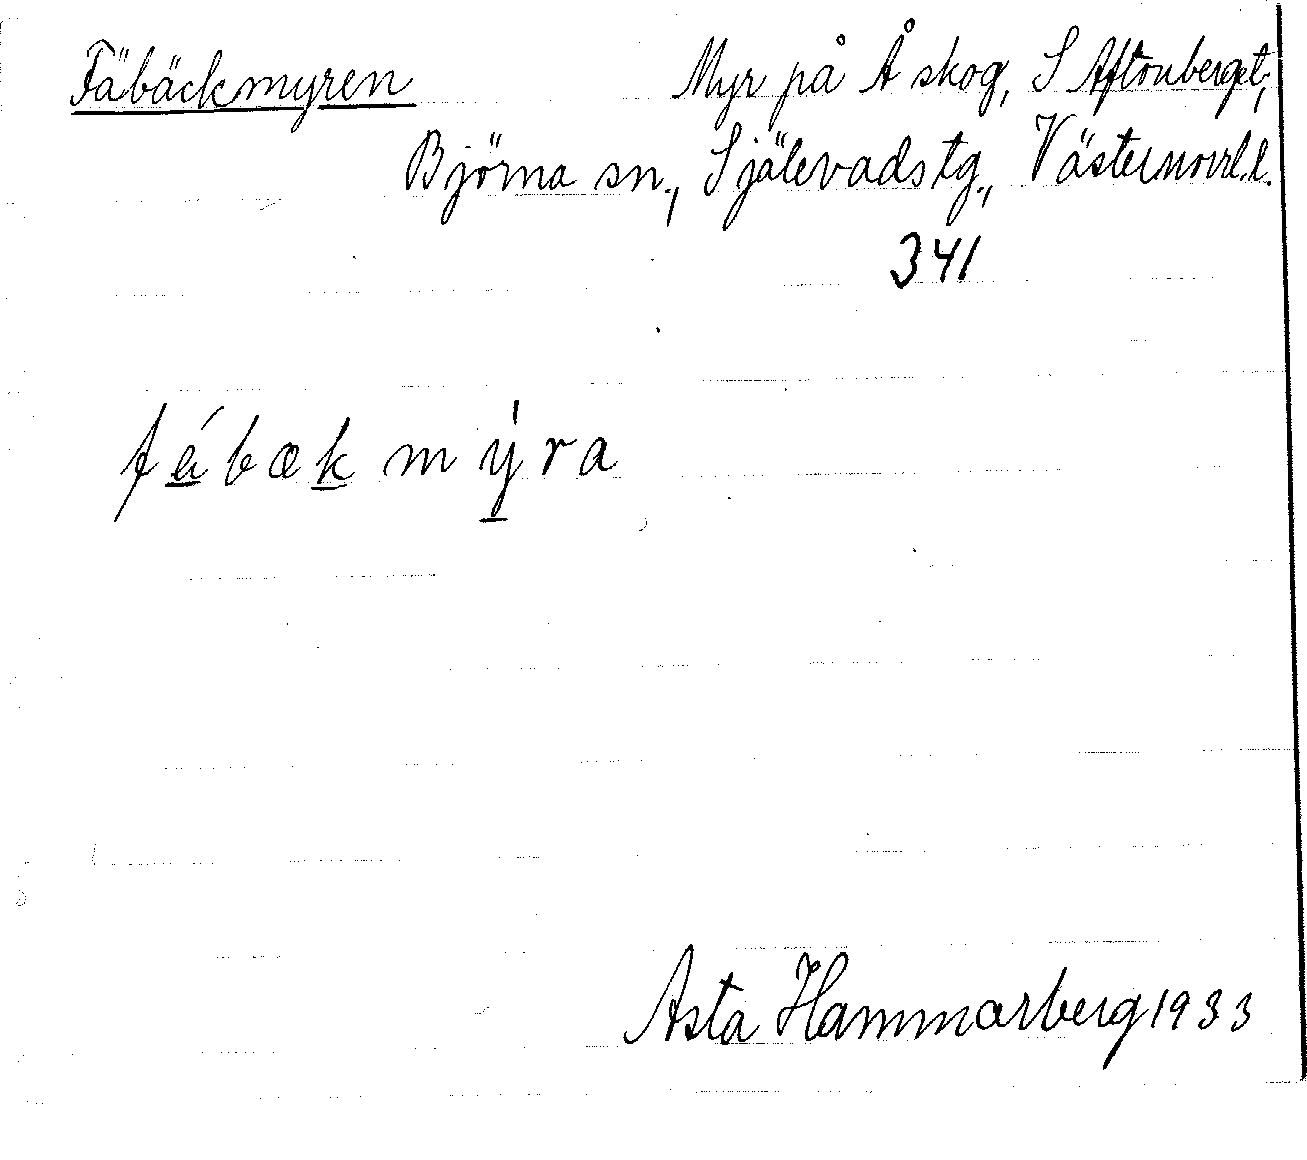 Fäbäckmyren Myr på Å skog, S Aftonberget,
Björna sn., Själevads tg., Västernorrl.l.
341
fébækmýra
Asta Hammarberg 1933